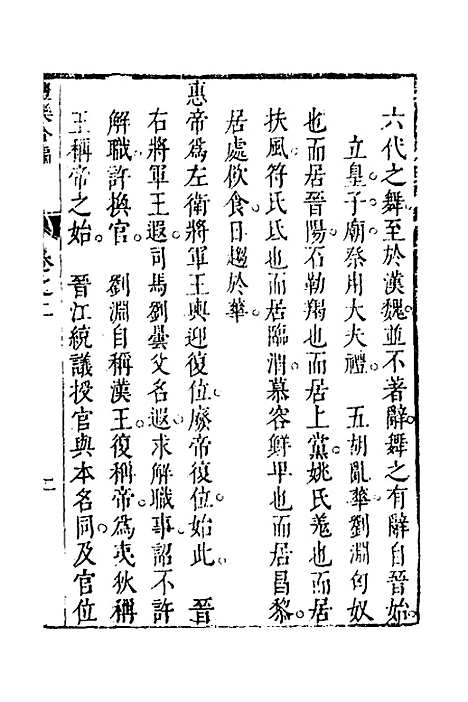 六代之舞至於漢魏並不著辭舞之有辭自晉始。
立皇子廟祭用大夫禮。　五胡亂華劉淵匈奴
也而居晉陽石勒羯也而居上黨姚氏羌也而居
扶風符氏氐也而居臨渭慕容鮮卑也而居昌黎。
居處飲食日趨於華
惠帝爲左衛將軍王輿迎復位。廢帝復位始此。　晉
右將軍王遐司馬劉曇父名遐求解職事詔不許
解職許換官。　劉淵自稱漢王。復稱帝。爲夷狄稱
王稱帝之始。　晉江統議授官與本名同。及官位
禮樂合編
卷之二